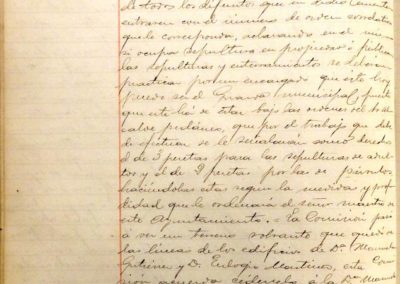 de todos los difuntos que en dicho Cemente
entraren con el número de orden correlativo
que le corresponda, aclarando en el mis
si ocupa sepultura en propiedad ó pública
las sepulturas y enterramientos se deberán
practicar por un encargado que este hoy
puede ser el Guarda municipal, puesto
que este há de estar bajo las ordenes del Al
calde pedáneo, que por el trabajo que debe
de efectuar se le señalaran como derechos
el de 3 pesetas para las sepulturas de adul
tos y el de 2 pesetas por las de párvulos
haciéndolas estas segun la medida y prof
didad que le ordenará el señor maestro de
este Ayuntamiento. = La Comisión pasó
á ver un terreno sobrante que quedó de
las líneas de los edificios de Dª Manuela
Gutierrez y D. Eulogio Martinez, esta Comi
sión acuerda cederselo á la Dª Manuela